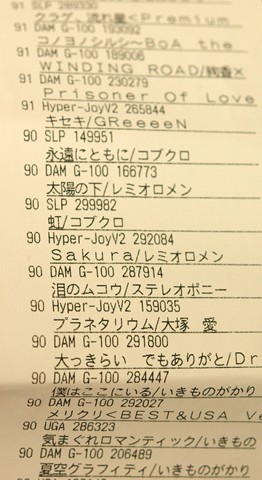 91 SLP 289330
クラゲ、流れ星<Premium
91 DAM G-100 193092
コノヨノシルシ~BoA the
91 DAM G-100 189006
WINDING ROAD/絢香×
91 DAM G-100 230279
Prisoner Of Love
91 Hyper-JoyV2 265844
キセキ/GReeeeN
90 SLP 149951
永遠にともに/コブクロ
90 DAM G-100 166773
太陽の下/レミオロメン
90 SLP 299982
虹/コブクロ
90 Hyper-JoyV2 292084
Sakura/レミオロメン
90 DAM G-100 287914
泪のムコウ/ステレオポニー
90 Hyper-JoyV2 159035
プラネタリウム/大塚 愛
90 DAM G-100 291800
大っきらい でもありがと/Dr
90 DAM G-100 284447
僕はここにいる/いきものがかり
90 DAM G-100 292027
メリクリ<BEST&USA Ve
90 UGA 286323
気まぐれロマンティック/いきもの
90 DAM G-100 206489
夏空グラフィティ/いきものがかり